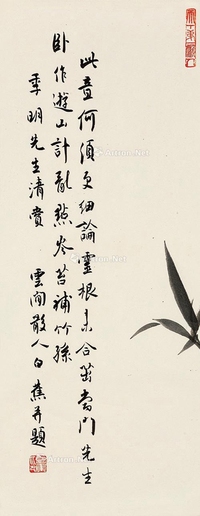 此意何須更細論靈根未合茁當門先生
卧作遊山計亂點岑苔補竹孫
季明先生清賞 雲間散人白蕉并題